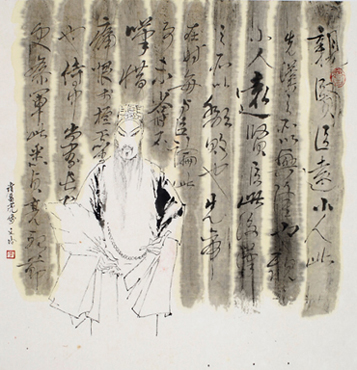 親賢臣遠小人此
先漢之所以興隆也親
小人遠賢臣此後漢
之所以也先帝
在時每與臣論此
事未嘗不
嘆惜
痛恨於桓靈
也侍中尚書長
史參軍此悉貞亮死節